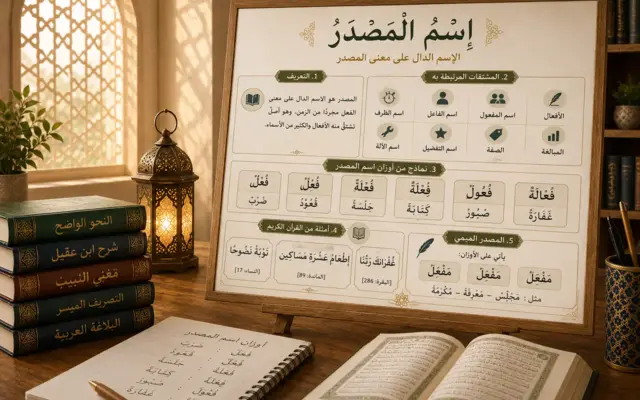 إِسْمُ الْمَصْدَرُ
الإسم الدال على معنى المصدر
1. التعريف
المصدر هو الاسم الدال على معنى
الفعل مجردًا من الزمن، وهو أصلٌ
تشتق منه الأفعال والكثير من الأسماء.
2. المشتقات المرتبطة به
الأفعال
اسم المفعول
اسم الفاعل
اسم الظرف
المبالغة
الصفة
اسم التفضيل
اسم الآلة
3. نماذج من أوزان اسم المصدر
فُعَالَة
غَفَارَةٌ
فُعُولٌ
صُبُورٌ
فُعْلَةٌ
كِتَابَةٌ
فُعْلَةٌ
جَلْسَةٌ
فُعْلٌ
قُعُوْدٌ
فُعْلٌ
ضَرْبٌ
4. أمثلة من القرآن الكريم
غُفْرَانَكَ رَبَّنَا
[البقرة: 286]
إطْعَامُ عَشَرَةِ مَسَاكِين
[المائدة: 89]
تَوْبَةً نَصُوحًا
[النساء: 17]
5. المصدر الميمي
يأتي على الأوزان:
مَفْعَلٌ
مَفْعِلٌ
مَفْعَلٌ
مثل: مَجْلِسٌ - مَعْرِفَة - مَكْرَمَة
النحو الواضح
شرح ابن عقيل
مغني النبيب
التصريف الميسر
البلاغة العربية
أوزان اسم المصدر
فعل ضرب
فعال قعود
فعلة جلسة
فعلة كتابة
فعول صبور
فعالة غفارة